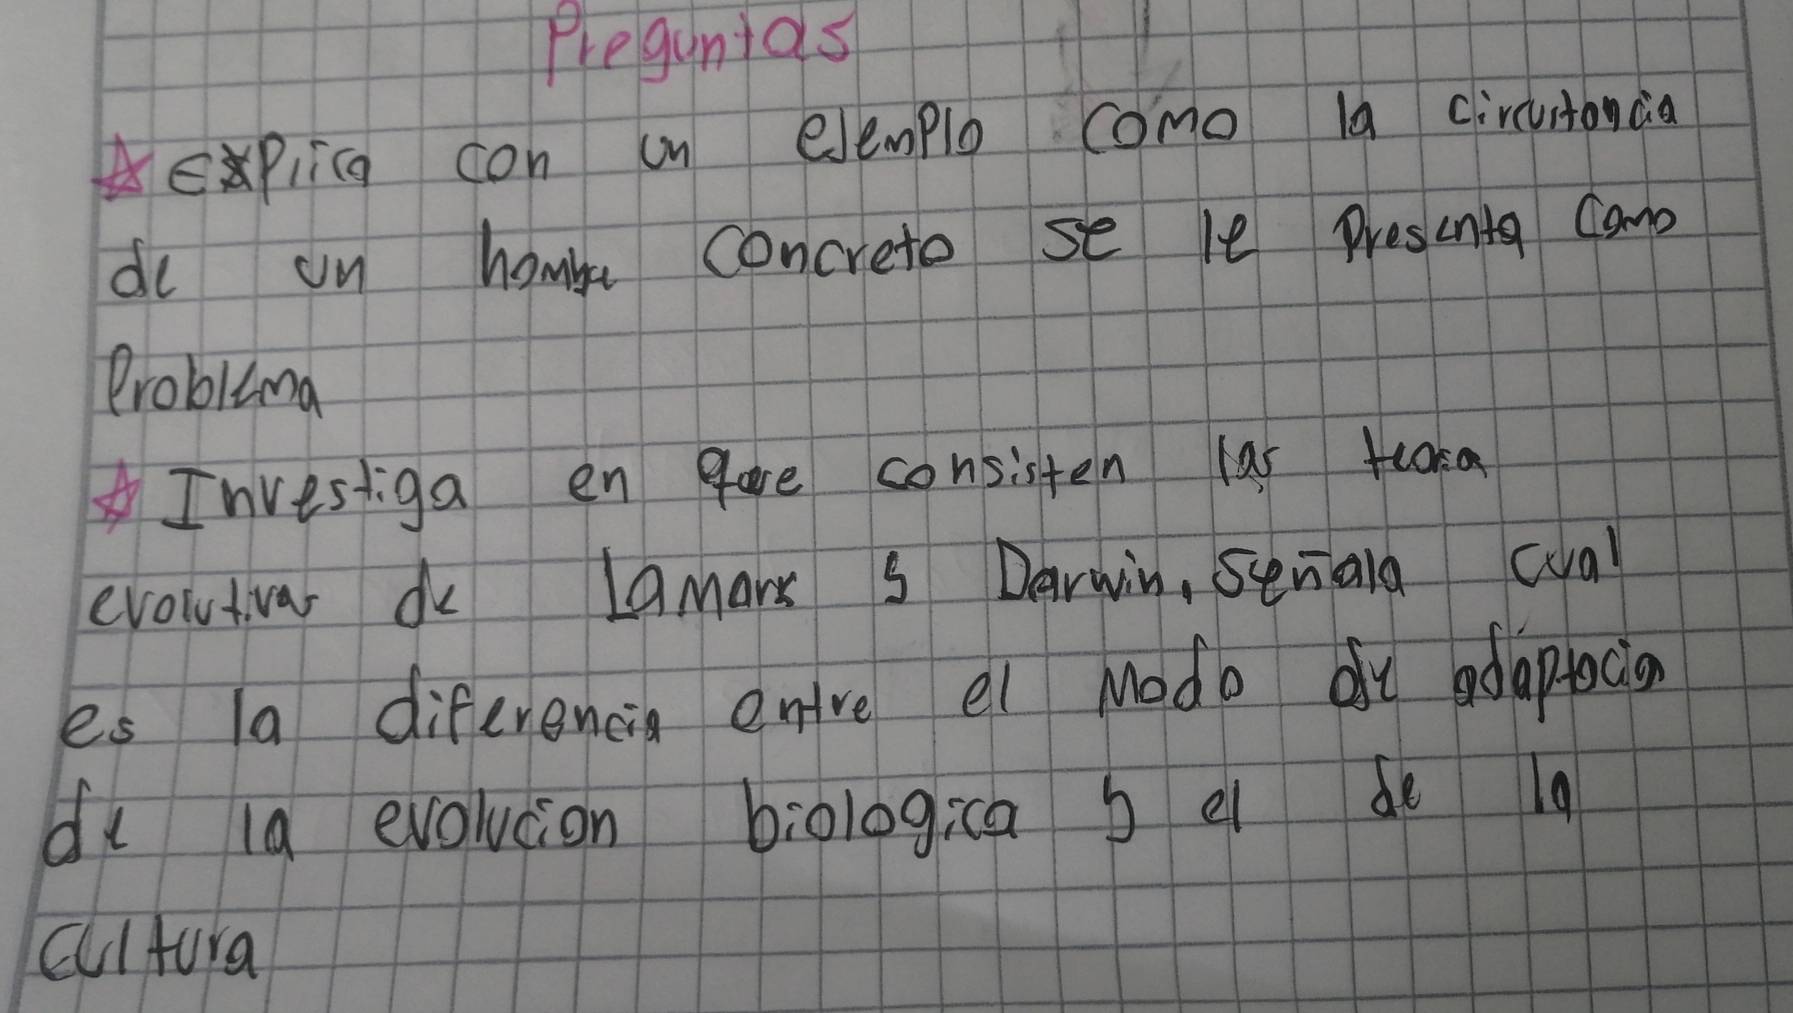 Preguntas
Explica con un ejemplo como la circustancia
de un hombre concreto se le presenta como
Problema
Investiga en que consisten las teoria
evolutivas de Lamark y Darwin, Señala cual
es la diferencia entre el modo de adaptacion
de la evolucion biologica y el de la
cultura